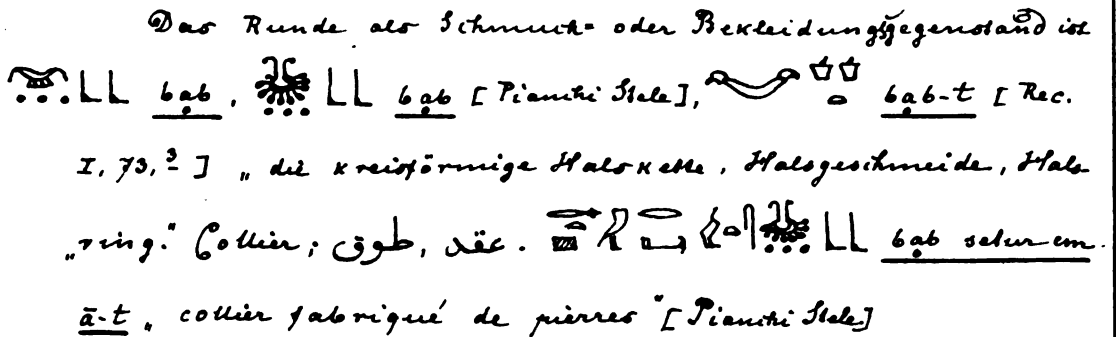 Das Runde als Schmuck- oder Bekleidungsgegenstand ist
bạb, bạb [Pianchi Stele], bạb-t [Rec.
I, 73, 3] „die kreisförmige Halskette, Halsgeschmeide, Hals-
„ring.“ Collier; طوق, عقد. bạb em
ā-t „collier fabriqué de pierres“ [Pianchi Stele]